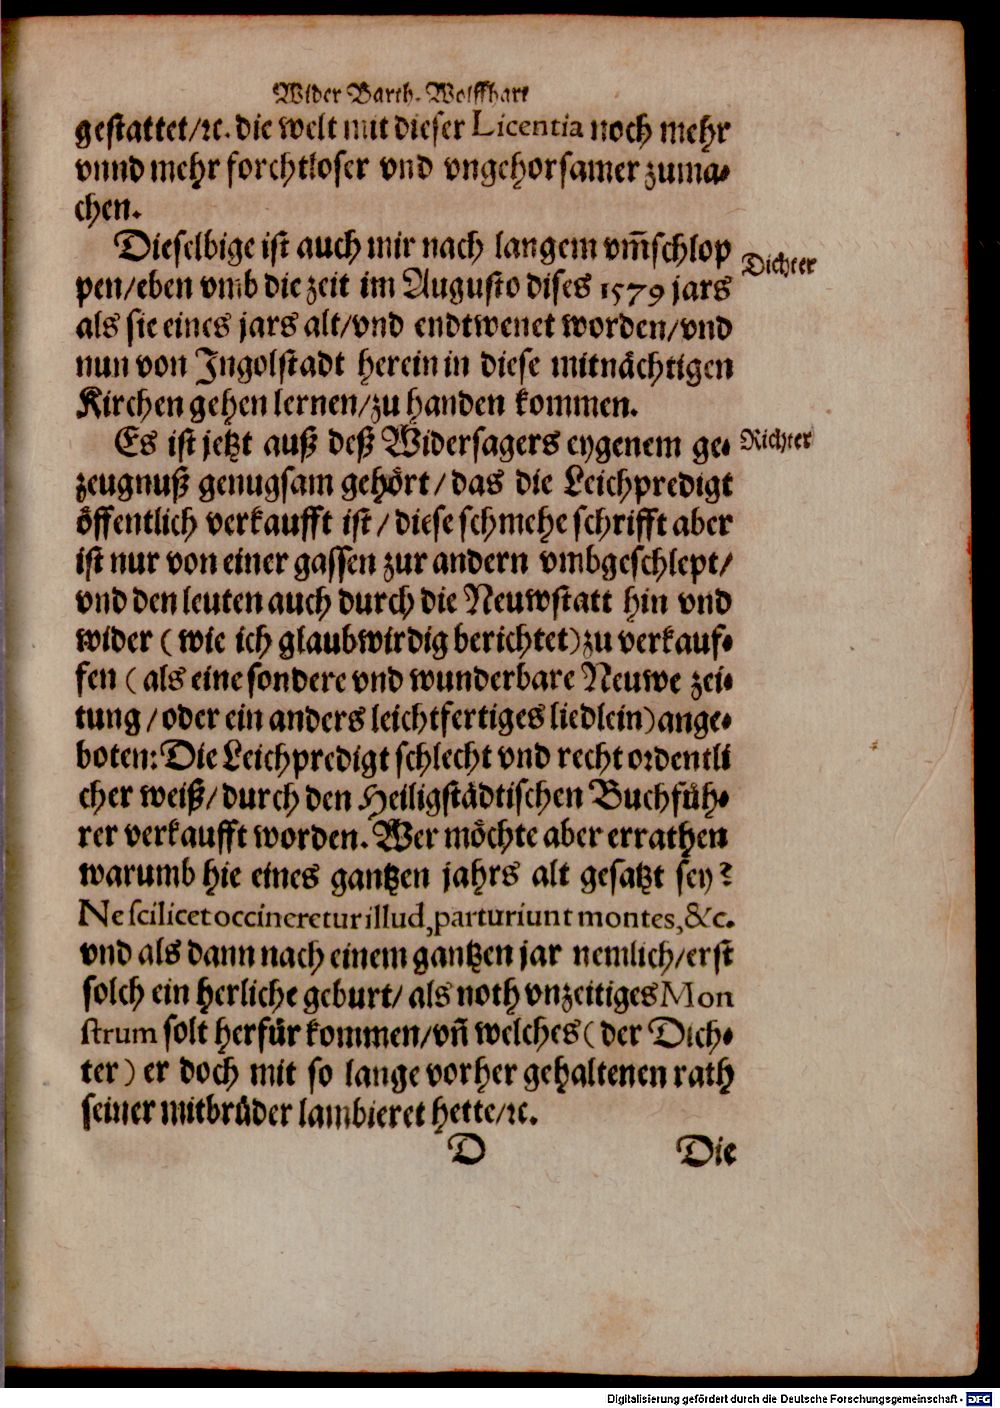 Wider Barth. Wolffhart
gestattet/ꝛc. die welt mit dieser Licentia noch mehr
vnnd mehr forchtloser vnd vngehorsamer zuma⸗
chen.
Dieselbige ist auch mir nach langem vm̄schlop
Dichter
pen/eben vmb die zeit im Augusto dises 1579 jars
als sie eines jars alt/vnd endtwenet worden/vnd
nun von Ingolstadt herein in diese mitnächtigen
Kirchen gehen lernen/zu handen kommen.
Es ist jetzt auß deß Widersagers eygenem ge⸗
Richter
zeugnuß genugsam gehört/das die Leichpredigt
öffentlich verkaufft ist/diese schmehe schrifft aber
ist nur von einer gassen zur andern vmbgeschlept/
vnd den leuten auch durch die Neuwstatt hin vnd
wider (wie ich glaubwirdig berichtet) zu verkauf⸗
fen (als eine sondere vnd wunderbare Neuwe zei⸗
tung/oder ein anders leichtfertiges liedlein) ange⸗
boten: Die Leichpredigt schlecht vnd recht ordentli
cher weiß/durch den Heiligstädtischen Buchfüh⸗
rer verkaufft worden. Wer möchte aber errathen
warumb hie eines gantzen jahrs alt gesatzt sey?
Ne scilicet occineretur illud, parturiunt montes, &c.
vnd als dann nach einem gantzen jar nemlich/erst
solch ein herliche geburt/als noth vnzeitiges Mon
strum solt herfür kommen/vn̄ welches (der Dich⸗
ter) er doch mit so lange vorher gehaltenen rath
seiner mitbrüder lambieret hette/ꝛc.
D Die
Digitalisierung gefördert durch die Deutsche Forschungsgemeinschaft - DFG